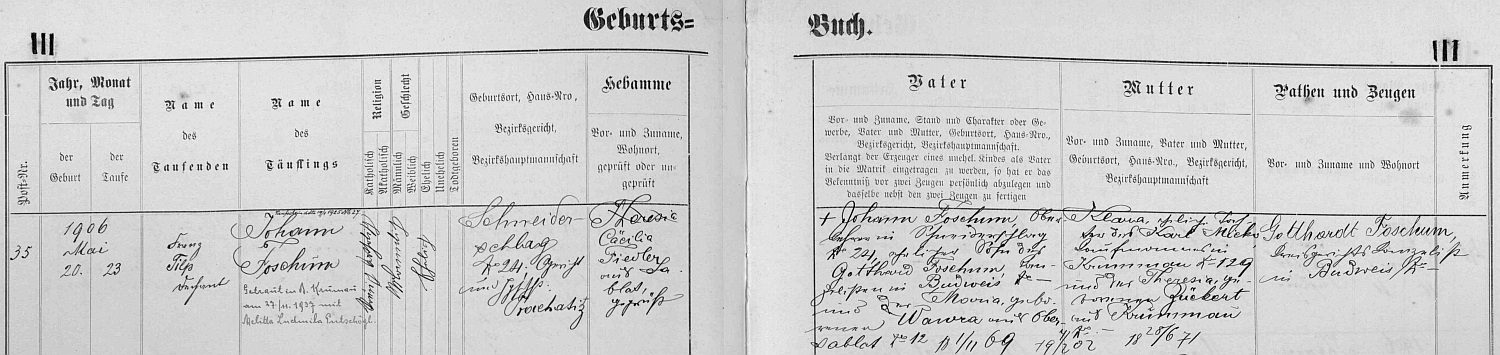 Geburts=
Buch.
III
III
Post-Nr.
Jahr, Monat
und Tag
der
Geburt
der
Taufe
Name
des
Taufenden
Name
des
Täuflings
Religion
Katholisch
Akatholisch
Geschlecht
Männlich
Weiblich
Ehelich
Unehelich
Todtgeboren
Geburtsort, Haus-Nro,
Bezirksgericht,
Bezirkshauptmannschaft
Hebamme
Vor- und Zuname,
Wohnort,
geprüft oder un-
geprüft
35
1906
Mai
20. 23
Franz
Filip
Dechant
Johann
Foschum
Getraut in B. Krumau
am 27/11. 1937 mit
Melitta Ludmila
Schneider-
schlag
No 24. Gericht
und
Prachatitz
Theresia
Cäcilia
Fiedler
aus Sa-
blat,
geprüft
Vater
Vor- und Zuname, Stand und Charakter oder Ge-
werbe, Vater und Mutter, Geburtsort, Haus-Nro.,
Bezirksgericht, Bezirkshauptmannschaft.
Verlangt der Erzeuger eines unehel. Kindes als Vater
in die Matrik eingetragen zu werden, so hat er das
Bekenntniß vor zwei Zeugen persönlich abzulegen und
dasselbe nebst den zwei Zeugen zu fertigen
Mutter
Vor- und Zuname, Vater und Mutter,
Geburtsort, Haus-Nro., Bezirksgericht,
Bezirkshauptmannschaft
Pathen und Zeugen
Vor- und Zuname und Wohnort
Anmerkung
+ Johann Foschum, Ober-
lehrer in Schneiderschlag
No 24, ehelicher Sohn des
Gotthard Foschum, Kan-
zelisten in Budweis
und der Maria, gebo-
renen Wawra aus Ober-
sablat No 12 18 1/11 69
Klara, eheliche Toch-
ter des Karl Micko
Kaufmannes in
Krummau No 129
und der Theresia, ge-
borenen Zückert
aus Krummau
18 28/6 71
Gotthardt Foschum,
Kreisgerichts Kanzelist
in Budweis